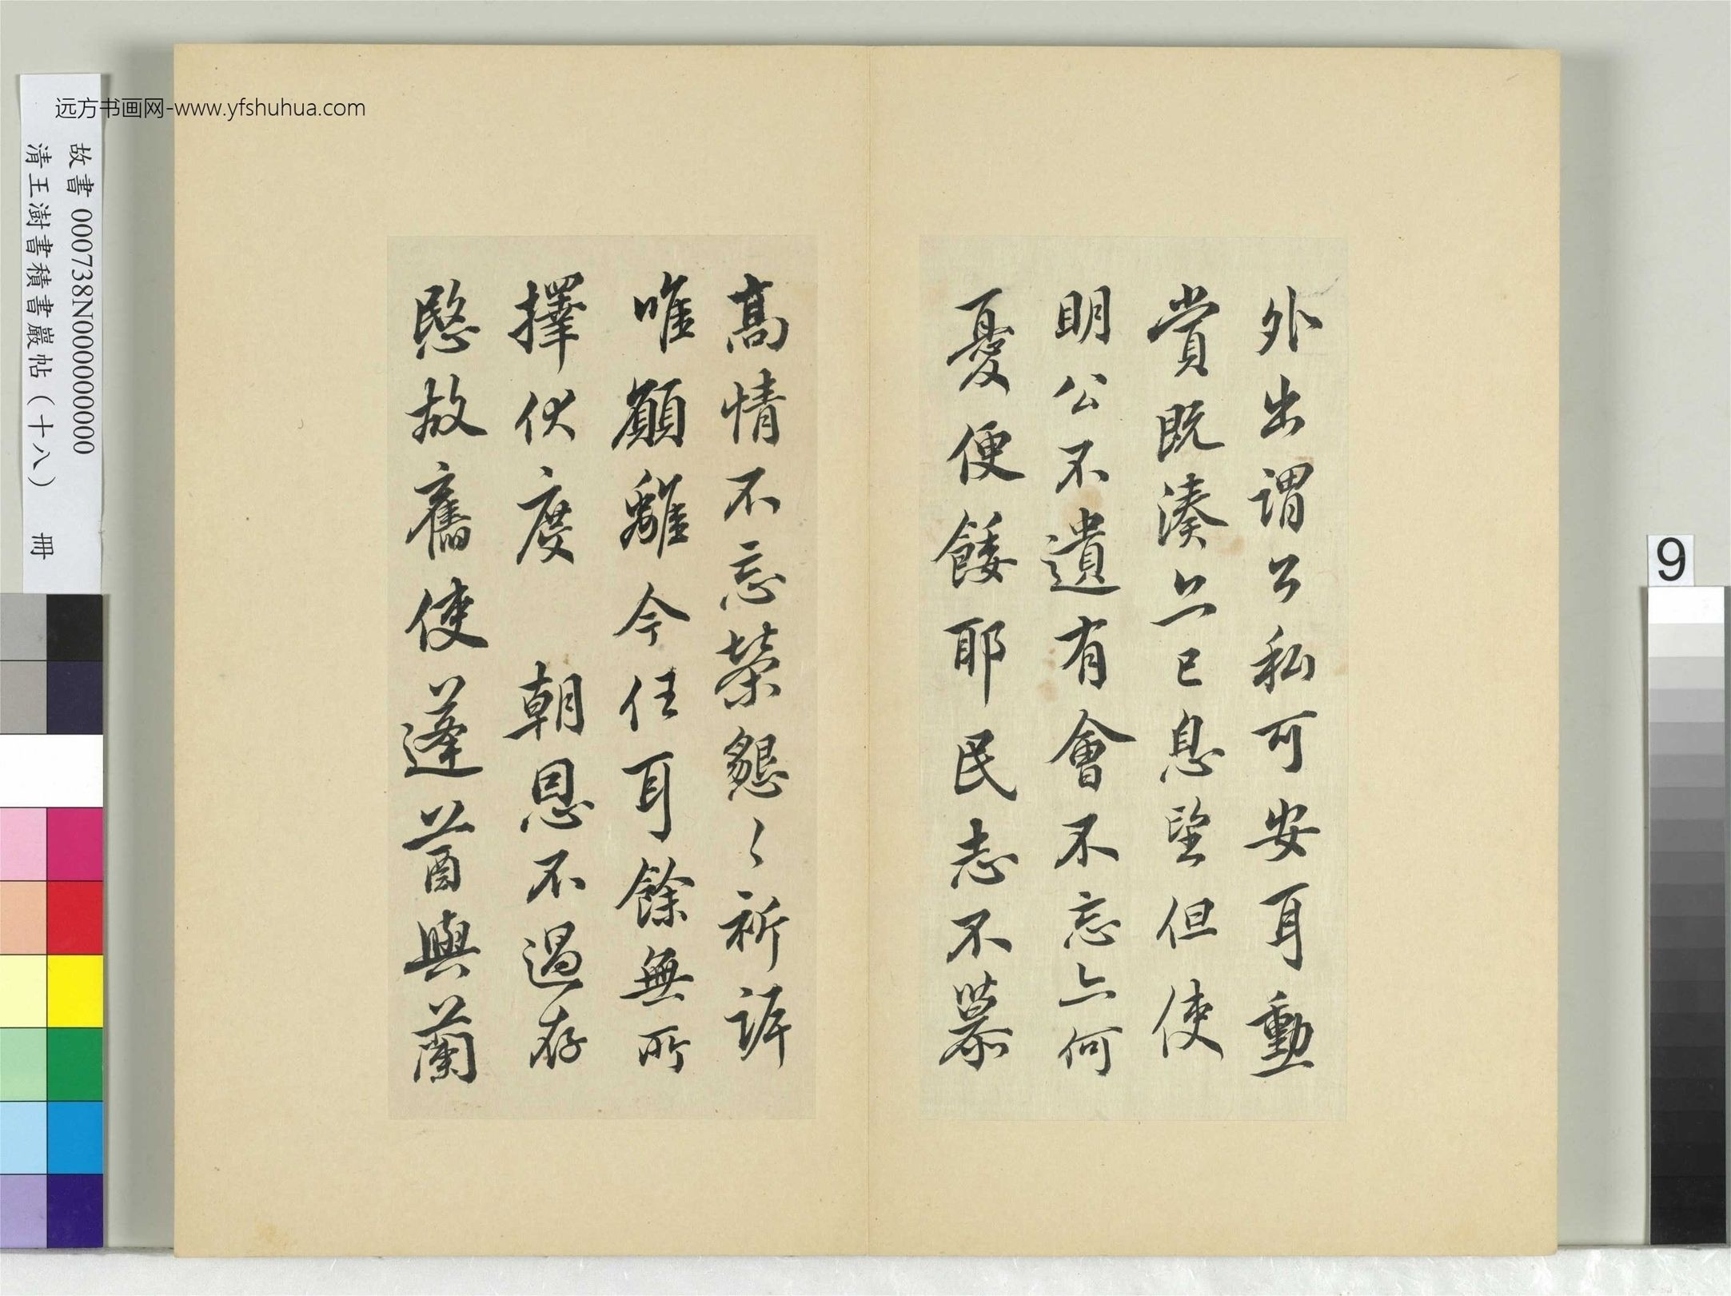 外出謂公私可安耳勳
賞既湊亦已息望但使
明公不遺有會不忘亦何
憂便餧耶民志不慕
高情不忘榮懇〻祈訴
唯願離今任耳餘無所
擇伏度 朝恩不過存
愍故舊使蓬莤與蘭
远方书画网-www.yfshuhua.com
故書 000738N000000000
清王澍書積書巖帖（十八） 冊
9